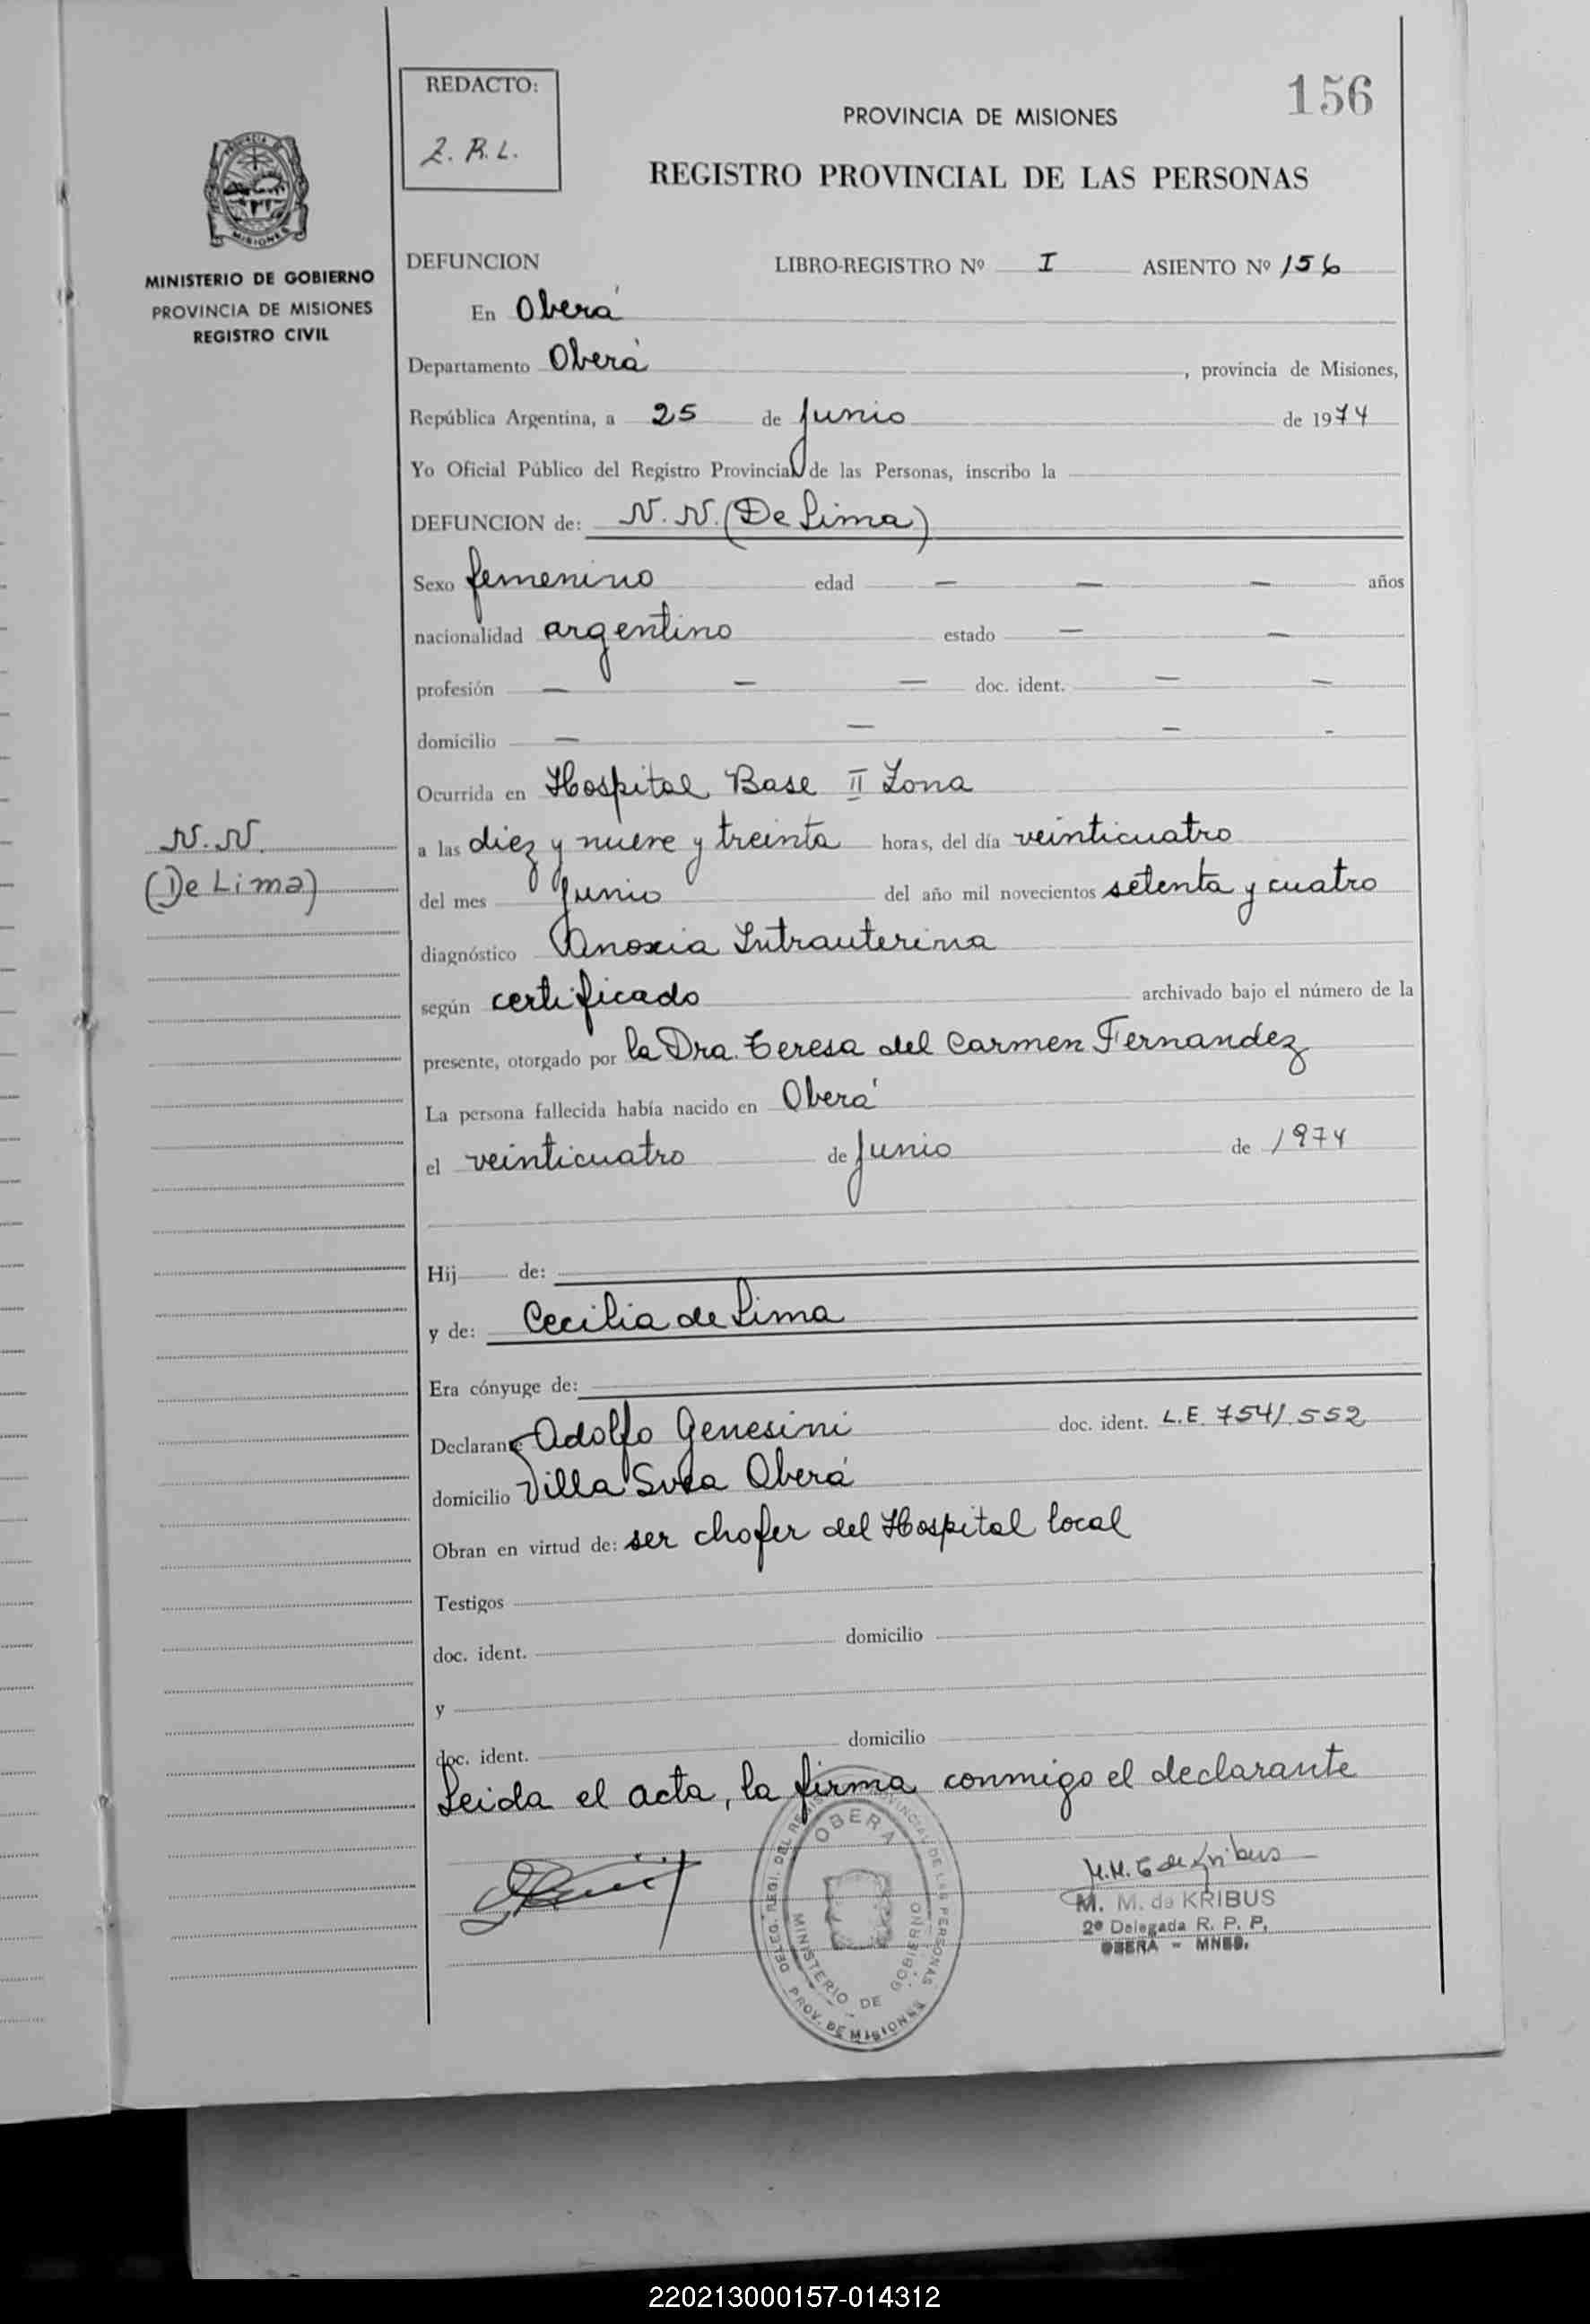 REDACTO:
Z. R. L.
156
PROVINCIA DE MISIONES
REGISTRO PROVINCIAL DE LAS PERSONAS
MISIONES
MINISTERIO DE GOBIERNO
PROVINCIA DE MISIONES
REGISTRO CIVIL
DEFUNCION LIBRO-REGISTRO Nº I ASIENTO Nº 156
En Oberá
Departamento Oberá, provincia de Misiones,
República Argentina, a 25 de Junio de 1974
Yo Oficial Público del Registro Provincial de las Personas, inscribo la
DEFUNCION de: N. N. (De Lima)
Sexo femenino edad — — — años
nacionalidad argentino estado — —
profesión — — — doc. ident. — —
domicilio — — — -
Ocurrida en Hospital Base II Zona
a las diez y nueve y treinta horas, del día veinticuatro
del mes Junio del año mil novecientos setenta y cuatro
diagnóstico Anoxia Intrauterina
según certificado archivado bajo el número de la
presente, otorgado por la Dra. Teresa del Carmen Fernandez
La persona fallecida había nacido en Oberá
el veinticuatro de Junio de 1974
N. N.
(De Lima)
Hij de:
y de: Cecilia de Lima
Era cónyuge de:
Declarante Adolfo Genesini doc. ident. L.E. 7541.552
domicilio Villa Svea Oberá
Obran en virtud de: ser chofer del Hospital local
Testigos
doc. ident. domicilio
y
doc. ident. domicilio
Leida el acta, la firma conmigo el declarante
OBERA
MINISTERIO DE GOBIERNO
PROV. DE MISIONES
M. M. de KRIBUS
2º Delegada R. P. P.
OBERA - MNES.
220213000157-014312